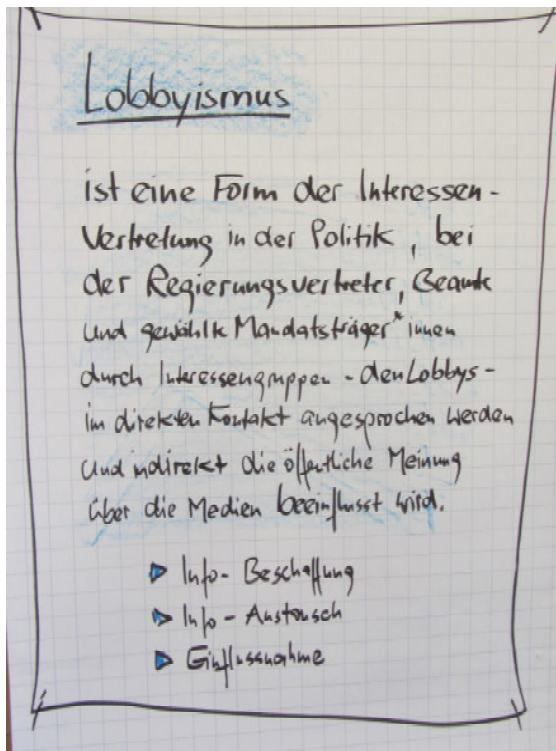 Lobbyismus
ist eine Form der Interessen-
Vertretung in der Politik, bei
der Regierungsvertreter, Beamte
und gewählte Mandatsträger*innen
durch Interessengruppen - den Lobbys -
im direkten Kontakt angesprochen werden
und indirekt die öffentliche Meinung
über die Medien beeinflusst wird.
Info- Beschaffung
Info - Austausch
Einflussnahme